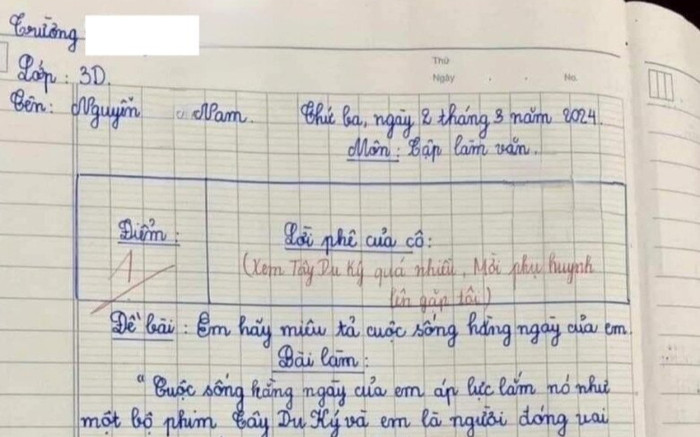 Trường
Lớp : 3D.
Thứ
Ngày . . No.
Tên: Nguyễn Nam. Thứ ba, ngày 2 tháng 3 năm 2024.
Môn : Tập làm văn.
Điểm : Lời phê của cô:
1 (Xem Tây Du Ký quá nhiều, Mời phụ huynh
lên gặp tôi)
Đề bài : Em hãy miêu tả cuộc sống hằng ngày của em.
Bài làm :
"Cuộc sống hằng ngày của em áp lực lắm nó như
một bộ phim Tây Du Ký và em là người đóng vai